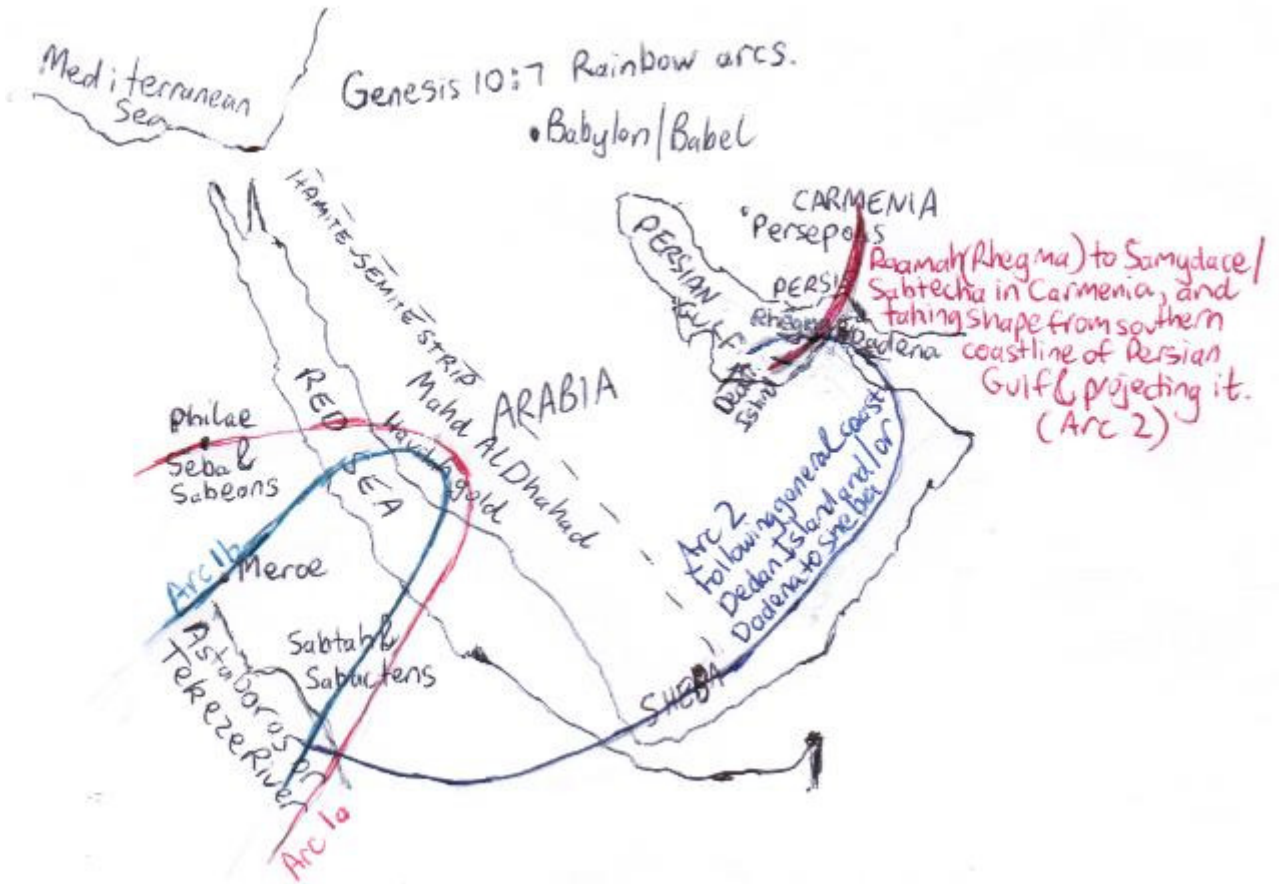 Mediterranean
Sea
Genesis 10:7 Rainbow arcs.
•Babylon/Babel
HAMITE-SEMITE STRIP
PERSIAN
GULF
CARMENIA
Persepolis
PERSIA
Rhegma
Dadena
Dedan
Island
Raamah(Rhegma) to Samydace/
Sabtecha in Carmenia, and
taking shape from southern
coastline of Persian
Gulf & projecting it.
(Arc 2)
RED
SEA
Mahd ALDhahad
ARABIA
Havilah gold
Philae
Seba &
Sabeans
Arc 1b
Meroe
Astaboras or
Tekeze River
Sabtah &
Arc 1a
SHEBA
Arc 2
Following general coast
Dedan Island and/or
Dadena to Sheba